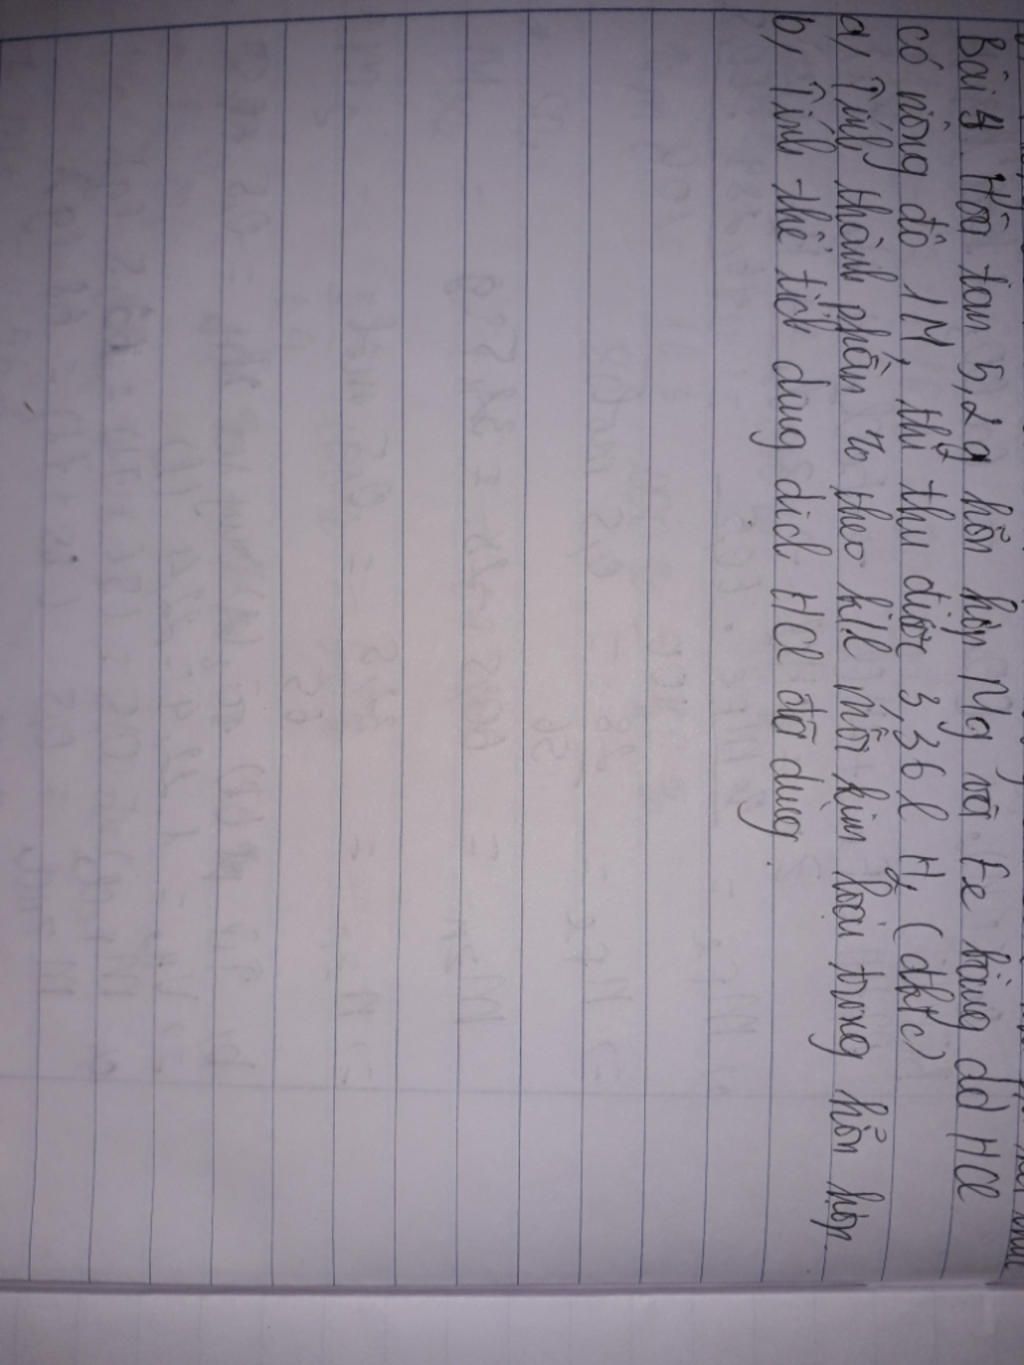 Bài 4. Hòa tan 5,2g hỗn hợp Mg và Fe bằng dd HCl
có nồng độ 1M, thì thu được 3,36 l H₂ (đktc)
a, Tính thành phần % theo klk mỗi kim loại trong hỗn hợp.
b, Tính thể tích dung dịch HCl đã dùng.